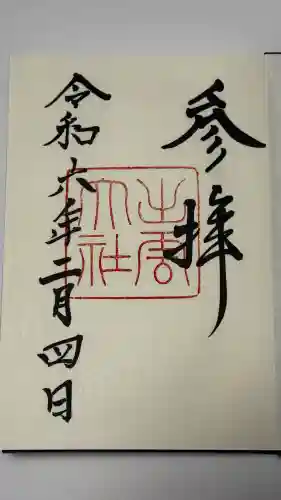 参拝
大社
令和六年二月四日